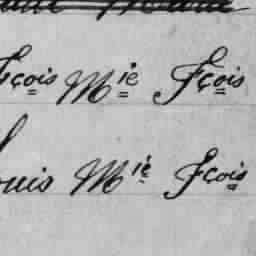 Fçois Mie Fçois
ouis Mie Fçois